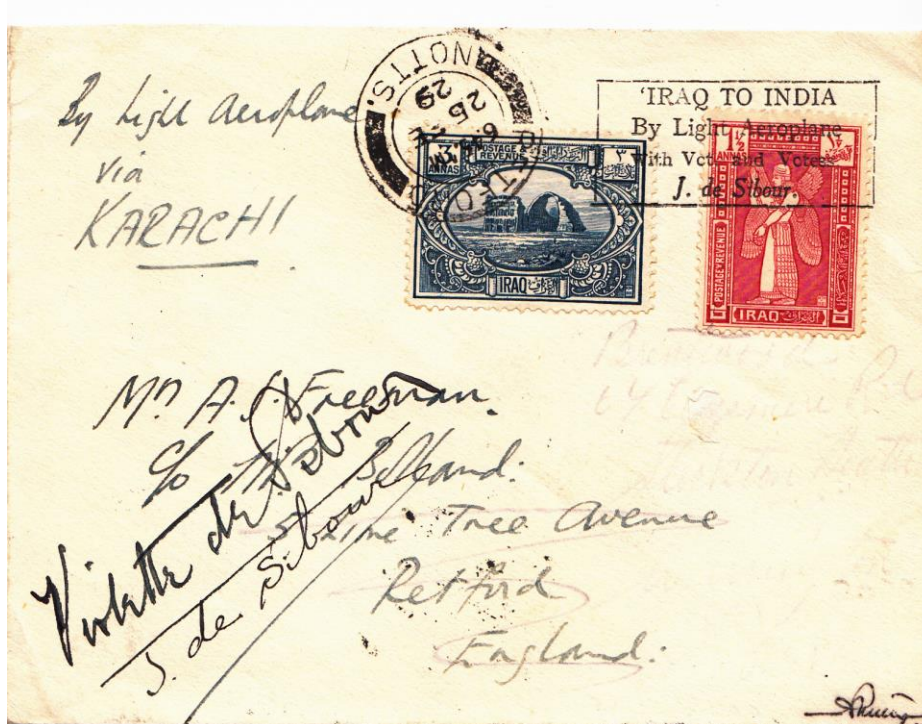 By Light Aeroplane
via
KARACHI
NOTTS.
25
29
'IRAQ TO INDIA
By Light Aeroplane
With Vote and Votesse
J. de Sibour.
3
ANNAS
POSTAGE &
REVENUE
٣
IRAQ
العراق
1½
AN
POSTAGE & REVENUE
IRAQ
Mr A. Freeman.
c/o Belband.
5 Lime Tree Avenue
Retford
England.
Violette de Sibour
J. de Sibour